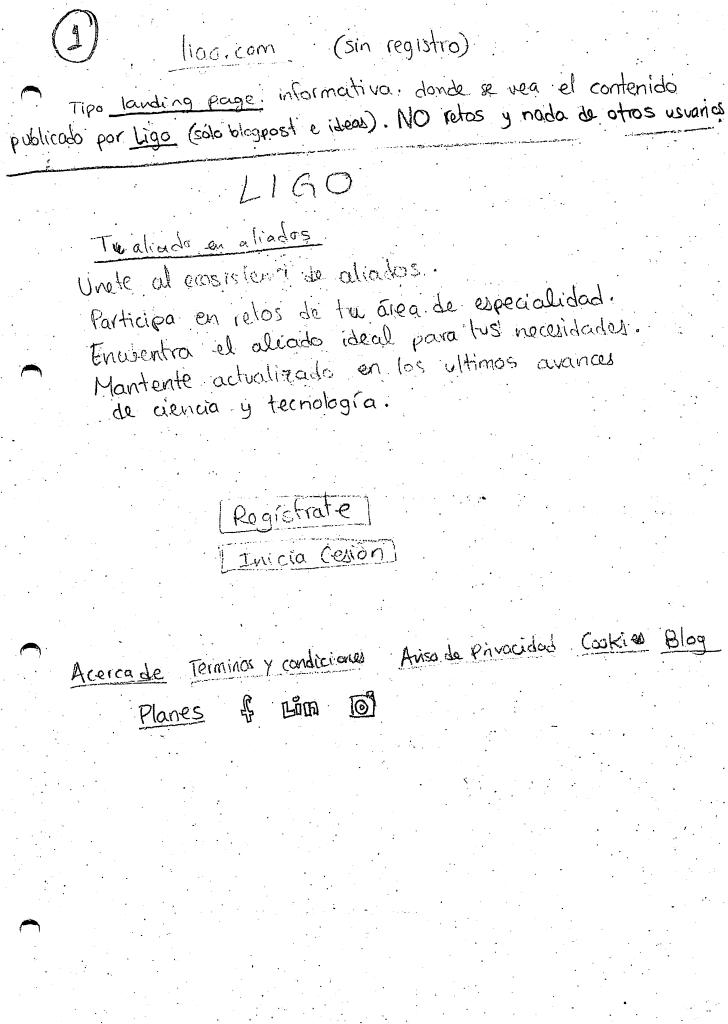 1
ligo.com (sin registro)
Tipo landing page: informativa. donde se vea el contenido
publicado por Ligo (sólo blogpost e ideas). NO retos y nada de otros usuarios
LIGO
Tu aliado en aliados
Unete al ecosistema de aliados.
Participa en retos de tu área de especialidad.
Encuentra el aliado ideal para tus necesidades.
Mantente actualizado en los ultimos avances
de ciencia y tecnología.
Registrate
Inicia Cesión
Acerca de Terminos y condiciones Aviso de Privacidad Cookies Blog
Planes f Lin